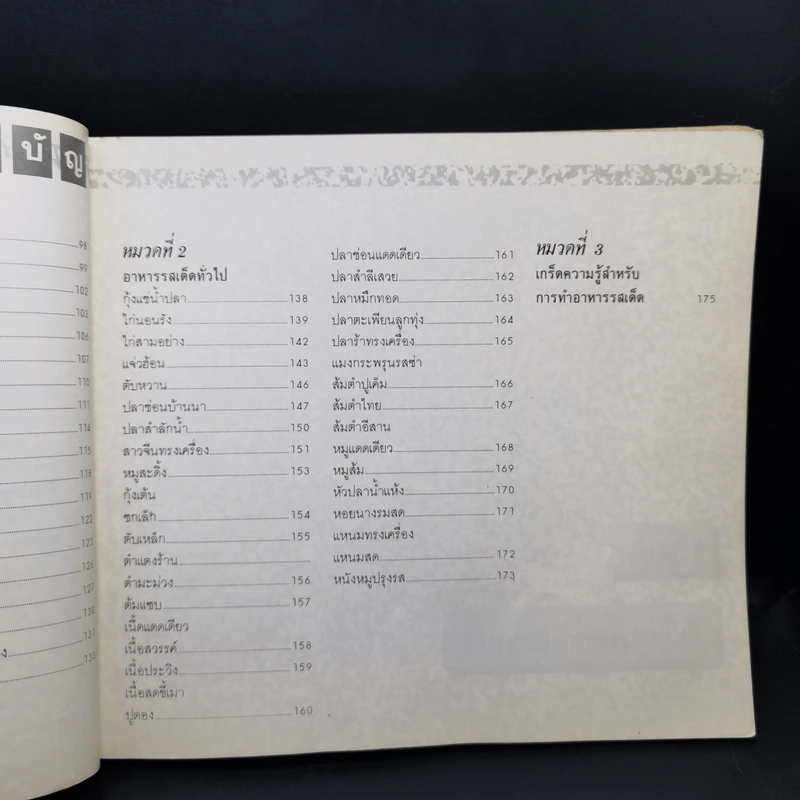 บัญ
98
99
102
103
106
107
110
111
114
115
118
119
122
123
126
127
130
ง 131
133
หมวดที่ 2
อาหารรสเด็ดทั่วไป
กุ้งแช่น้ำปลา 138
ไก่นอนรัง 139
ไก่สามอย่าง 142
แจ่วฮ้อน 143
ตับหวาน 146
ปลาช่อนบ้านนา 147
ปลาสำลักน้ำ 150
สาวจีนทรงเครื่อง 151
หมูสะดิ้ง 153
กุ้งเต้น
ซกเล็ก 154
ตับเหล็ก 155
ตำแตงร้าน
ตำมะม่วง 156
ต้มแซบ 157
เนื้อแดดเดียว
เนื้อสวรรค์ 158
เนื้อประวิง 159
เนื้อสดขี้เมา
ปูดอง 160
ปลาช่อนแดดเดียว 161
ปลาสำลีเสวย 162
ปลาหมึกทอด 163
ปลาตะเพียนลูกทุ่ง 164
ปลาร้าทรงเครื่อง 165
แมงกะพรุนรสซ่า
ส้มตำปูเค็ม 166
ส้มตำไทย 167
ส้มตำอีสาน
หมูแดดเดียว 168
หมูส้ม 169
หัวปลาน้ำแห้ง 170
หอยนางรมสด 171
แหนมทรงเครื่อง
แหนมสด 172
หนังหมูปรุงรส 173
หมวดที่ 3
เกร็ดความรู้สำหรับ
การทำอาหารรสเด็ด 175